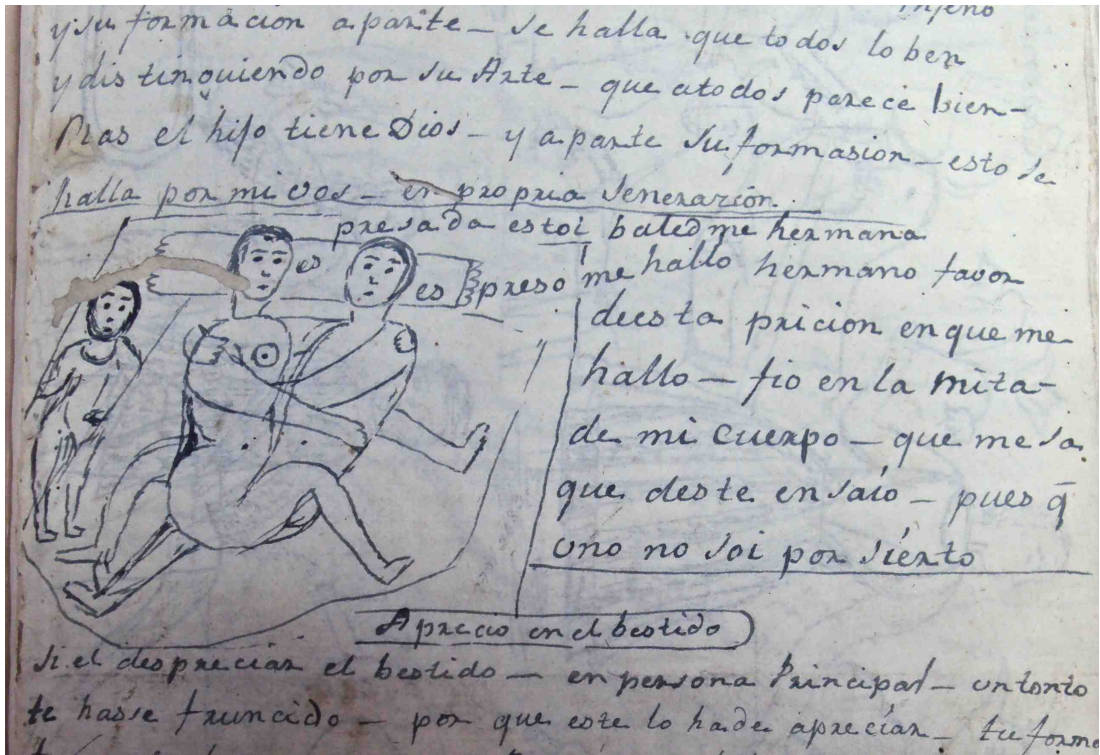 Infeno
y su formacion aparte – se halla que todos lo ben
y distinquiendo por su Arte – que atodos parece bien –
Mas el hijo tiene Dios – y aparte su formasion – esto se
halla por mi vos – en propria Senerazión
presada estoi baled me hermana
es es preso me hallo hermano favor
deesta pricion en que me
hallo – fio en la mita
de mi cuerpo – que me sa
que deste ensaío – pues q̄
uno no soi por síerto
Aprecio en el bestido
Si el despreciar el bestido – en persona Principal – un tonto
te hasse fruncido – por que este lo hade aprecíar – tu forma